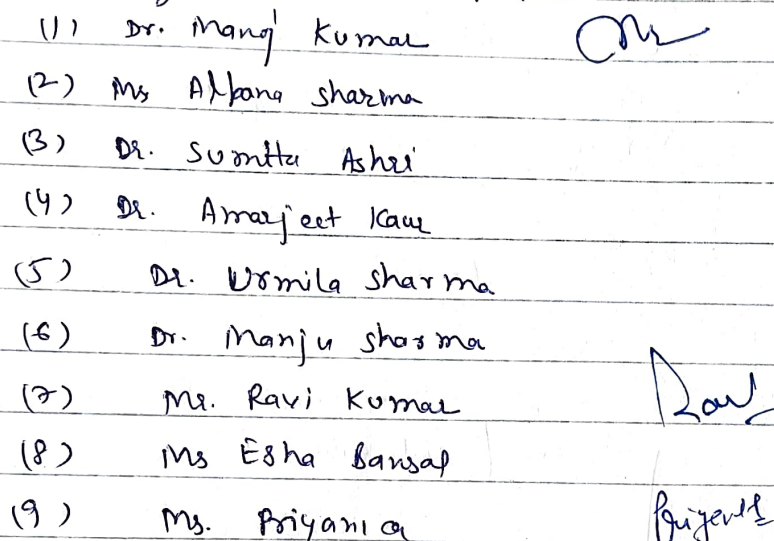 (1) Dr. Manoj Kumar
(2) Ms Alpana Sharma
(3) Dr. Sumitta Ashri
(4) Dr. Amarjeet Kaur
(5) Dr. Urmila Sharma
(6) Dr. Manju Sharma
(7) Mr. Ravi Kumar
(8) Ms Esha Bansal
(9) Ms. Priyanka